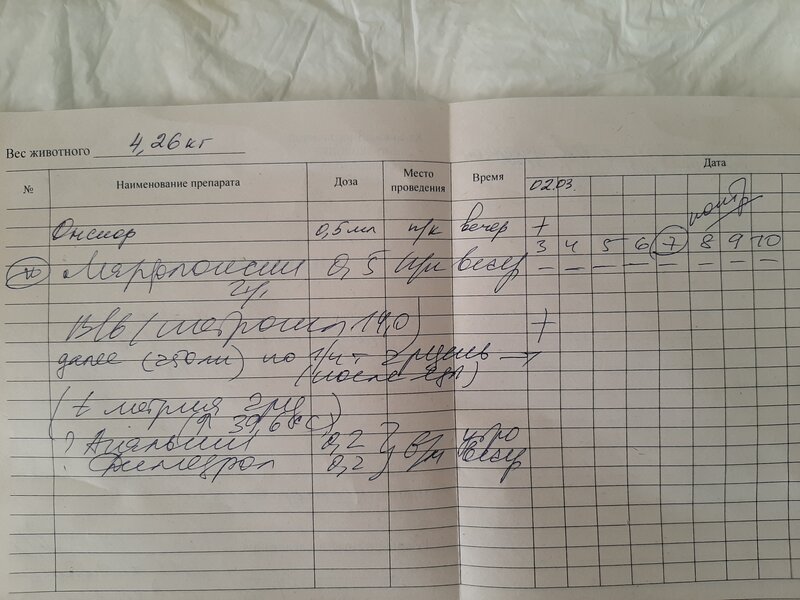 Вес животного 4,26 кг
№ Наименование препарата Доза Место проведения Время Дата
02.03.
Онсиор 0,5 мл п/к вечер +
контр
3 4 5 6 7 8 9 10
10 Марфлоксин 0,5 п/к вечер – – – – – – – –
2%
В/в (метрогил 14,0) +
далее (250мл) по 1/4 т 2р/день →
(после еды)
(t метрия 2р/д
(↑ 39,6°C)
? Анальгин 0,2 } в/м утро
Димедрол 0,2 вечер